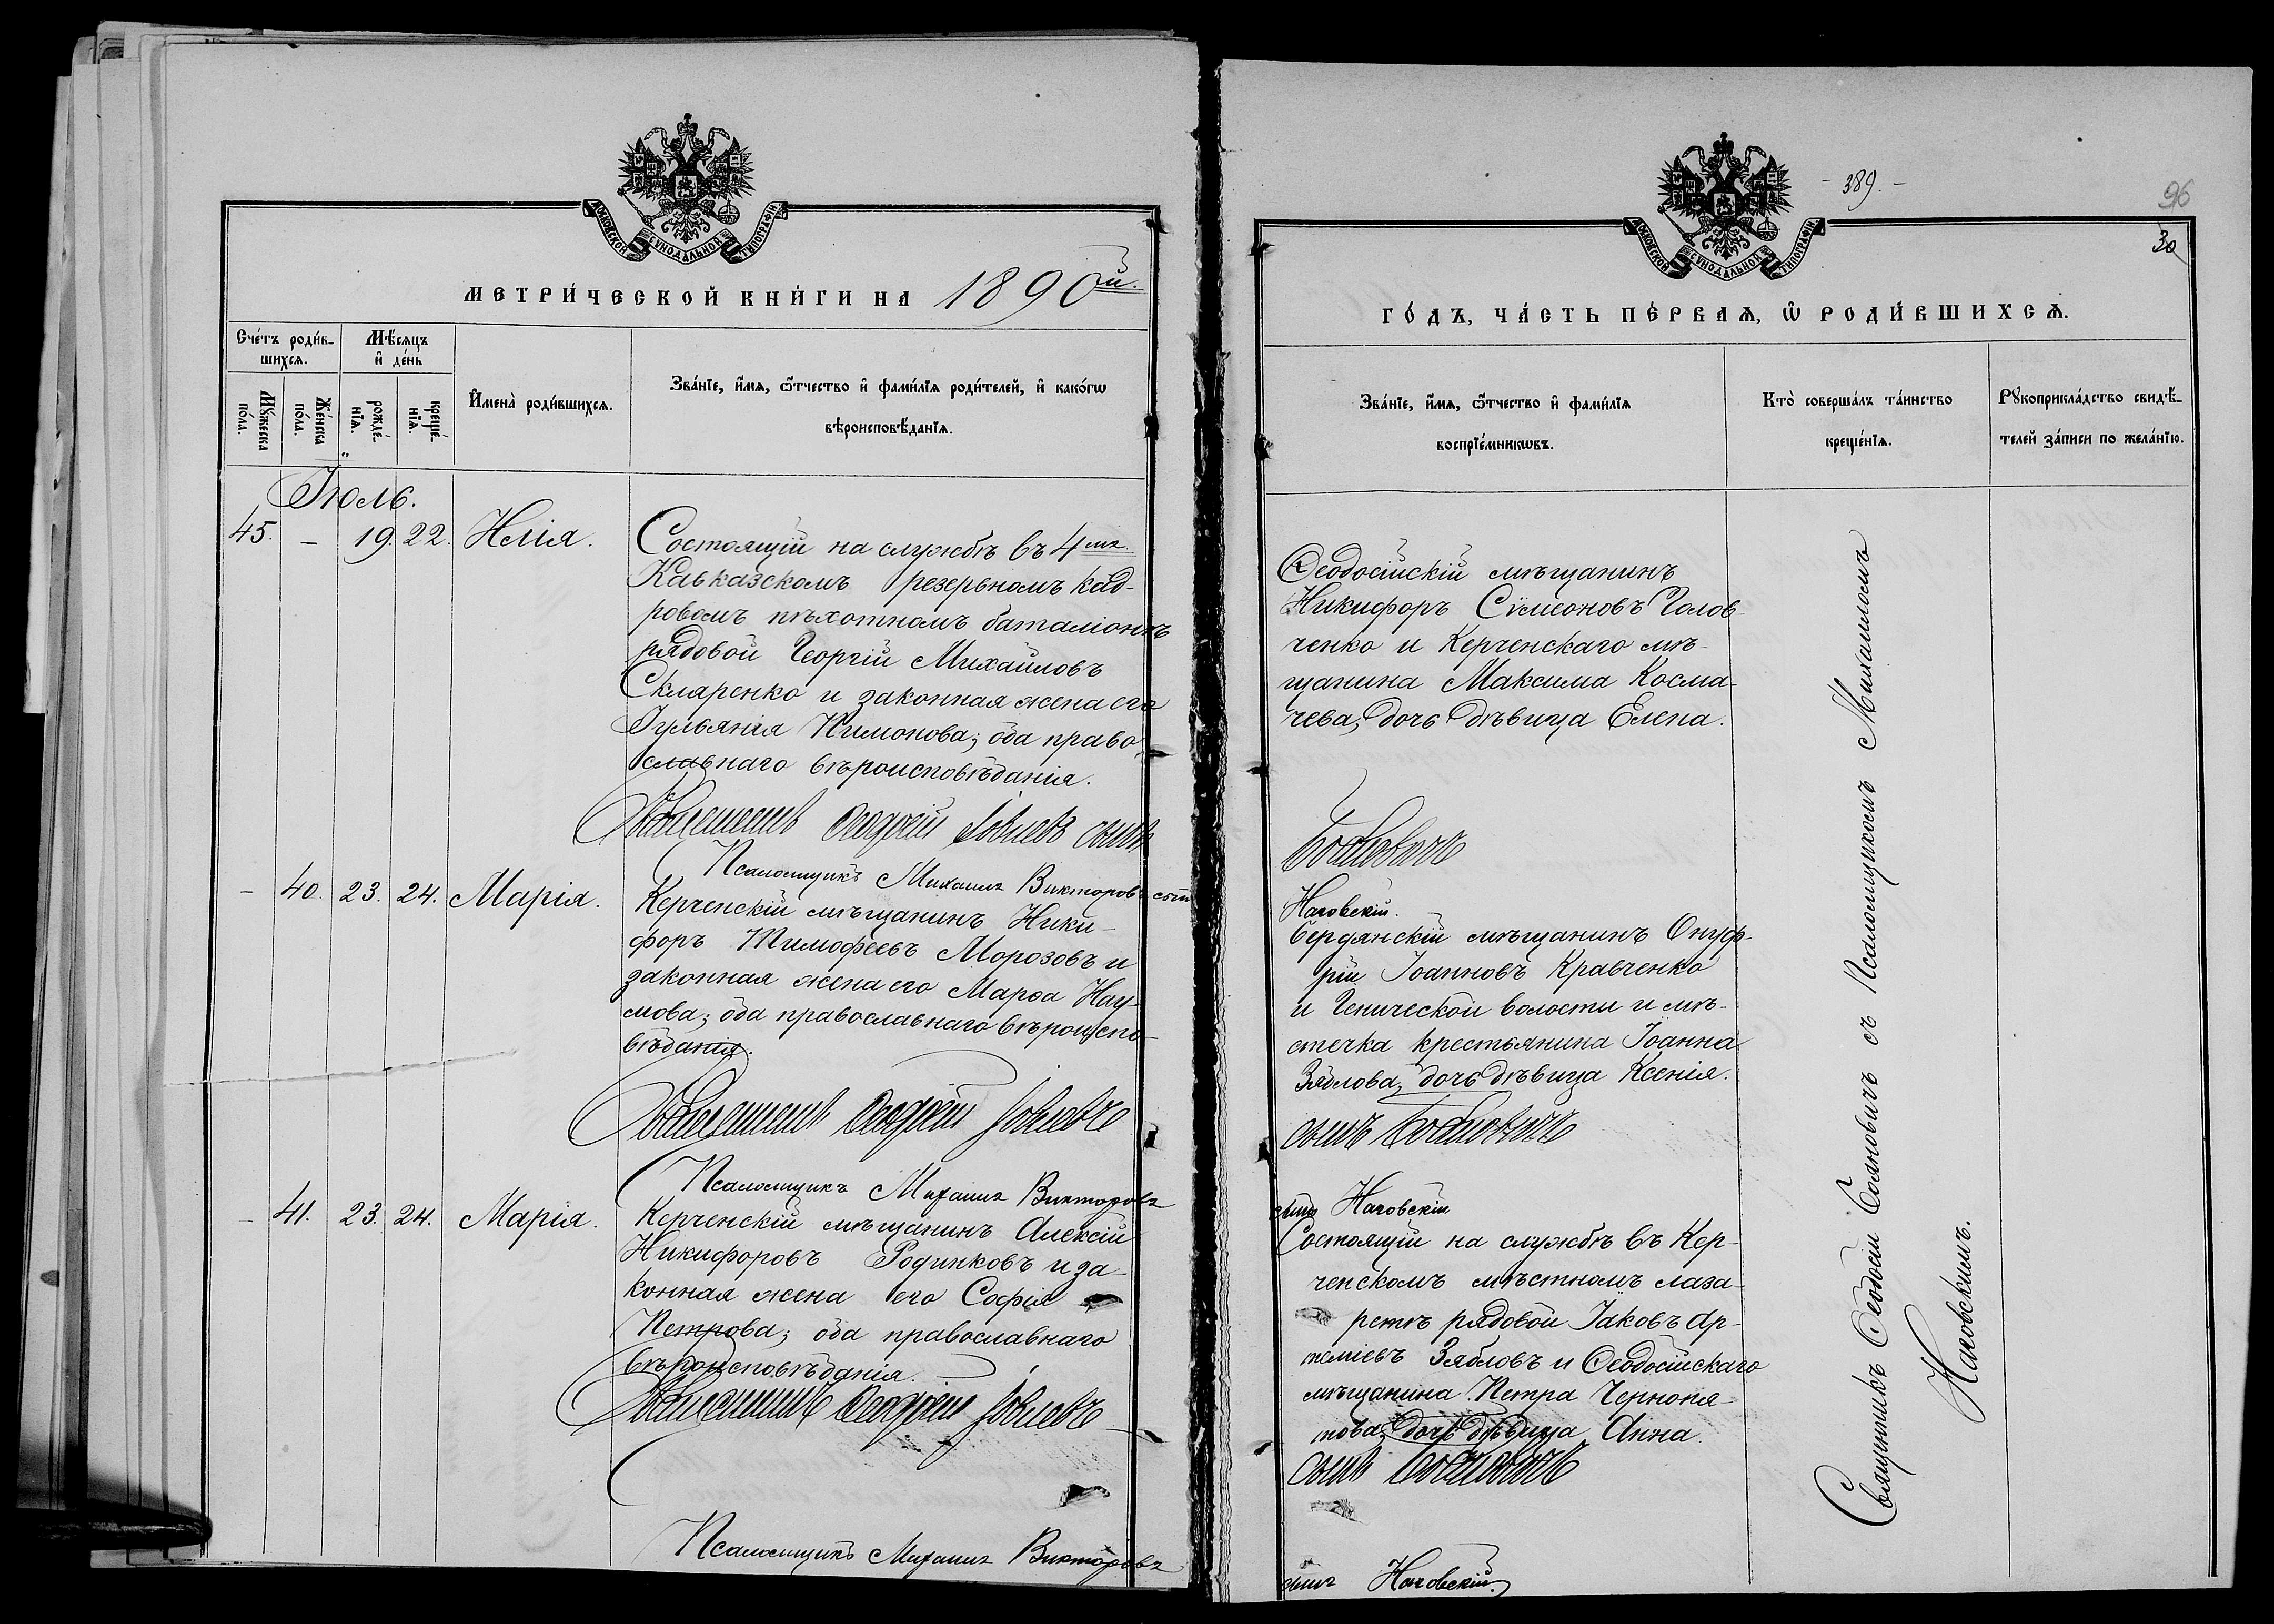 МОСКОВСКОЙ СѴНОДАЛЬНОЙ ТИПОГРАФІИ
МЕТРИ́ЧЕСКОЙ КНИ́ГИ НА 1890й.
Сче́тъ роди́в-
шихсѧ.
Мѣ́сѧцъ
и҆ де́нь
Мꙋ́жеска
по́ла.
Же́нска
по́ла.
рожде́-
нїѧ.
креще́-
нїѧ.
И҆мена̀ роди́вшихсѧ.
Зва́нїе, и҆́мѧ, ѻ҆́тчество и҆ фами́лїѧ роди́телей, и҆ како́гѡ
вѣроисповѣ́данїѧ.
Іюль.
45. – 19. 22. Илія.
Состоящій на службѣ въ 4мъ
Кавказскомъ резервномъ кад-
ровомъ пѣхотномъ баталіонѣ
рядовой Георгій Михайловъ
Скляренко и законная жена его
Іуліанія Тимонова; оба право-
славнаго вѣроисповѣданія.
Священникъ Ѳеодосій Іовлевъ сынъ
Псаломщикъ Михаилъ Викторовъ сынъ
– 40. 23. 24. Марія.
Керченскій мѣщанинъ Ники-
форъ Тимофеевъ Морозовъ и
законная жена его Марѳа Нау-
мова; оба православнаго вѣроиспо-
вѣданія.
Священникъ Ѳеодосій Іовлевъ
Псаломщикъ Михаилъ Викторовъ
– 41. 23. 24. Марія.
Керченскій мѣщанинъ Алексій
Никифоровъ Родинковъ и за-
конная жена его Софія
Петрова; оба православнаго
вѣроисповѣданія.
Священникъ Ѳеодосій Іовлевъ
Псаломщикъ Михаилъ Викторовъ
- 389. -
96
30
МОСКОВСКОЙ СѴНОДАЛЬНОЙ ТИПОГРАФІИ
ГО́ДЪ, ЧА́СТЬ ПЕ́РВАѦ, Ѡ҆ РОДИ́ВШИХСѦ.
Зва́нїе, и҆́мѧ, ѻ҆́тчество и҆ фами́лїѧ
воспрїе́мникѡвъ.
Кто̀ соверша́лъ та́инство
креще́нїѧ.
Рꙋкоприкла́дство свидѣ́-
телей за́писи по жела́нїю.
Ѳеодосійскій мѣщанинъ
Никифоръ Сѵмеоновъ Голов-
ченко и Керченскаго мѣ-
щанина Максима Косма-
чева, дочь дѣвица Елена.
Бояновичъ
Наговскій.
Бердянскій мѣщанинъ Онуф-
рій Іоанновъ Кравченко
и Генической волости и мѣ-
стечка крестьянина Іоанна
Зяблова, дочь дѣвица Ксенія.
сынъ Бояновичъ
сынъ Наговскій
Состоящій на службѣ въ Кер-
ченскомъ мѣстномъ лаза-
ретѣ рядовой Іаковъ Ар-
теміевъ Зябловъ и Ѳеодосійскаго
мѣщанина Петра Чернопя-
това, дочь дѣвица Анна.
сынъ Бояновичъ
сынъ Наговскій.
Священникъ Ѳеодосій Бояновичъ съ Псаломщикомъ Михаиломъ
Наговскимъ.